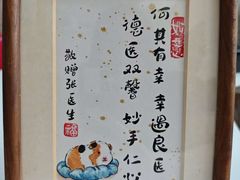 何其有幸幸遇良医
德医双馨妙手仁心
敬赠张医生
福